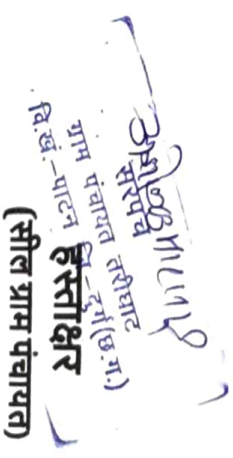 सरपंच
ग्राम पंचायत तरीघाट
वि.खं.-पाटन जि.-दुर्ग (छ.ग.)
हस्ताक्षर
(सील ग्राम पंचायत)